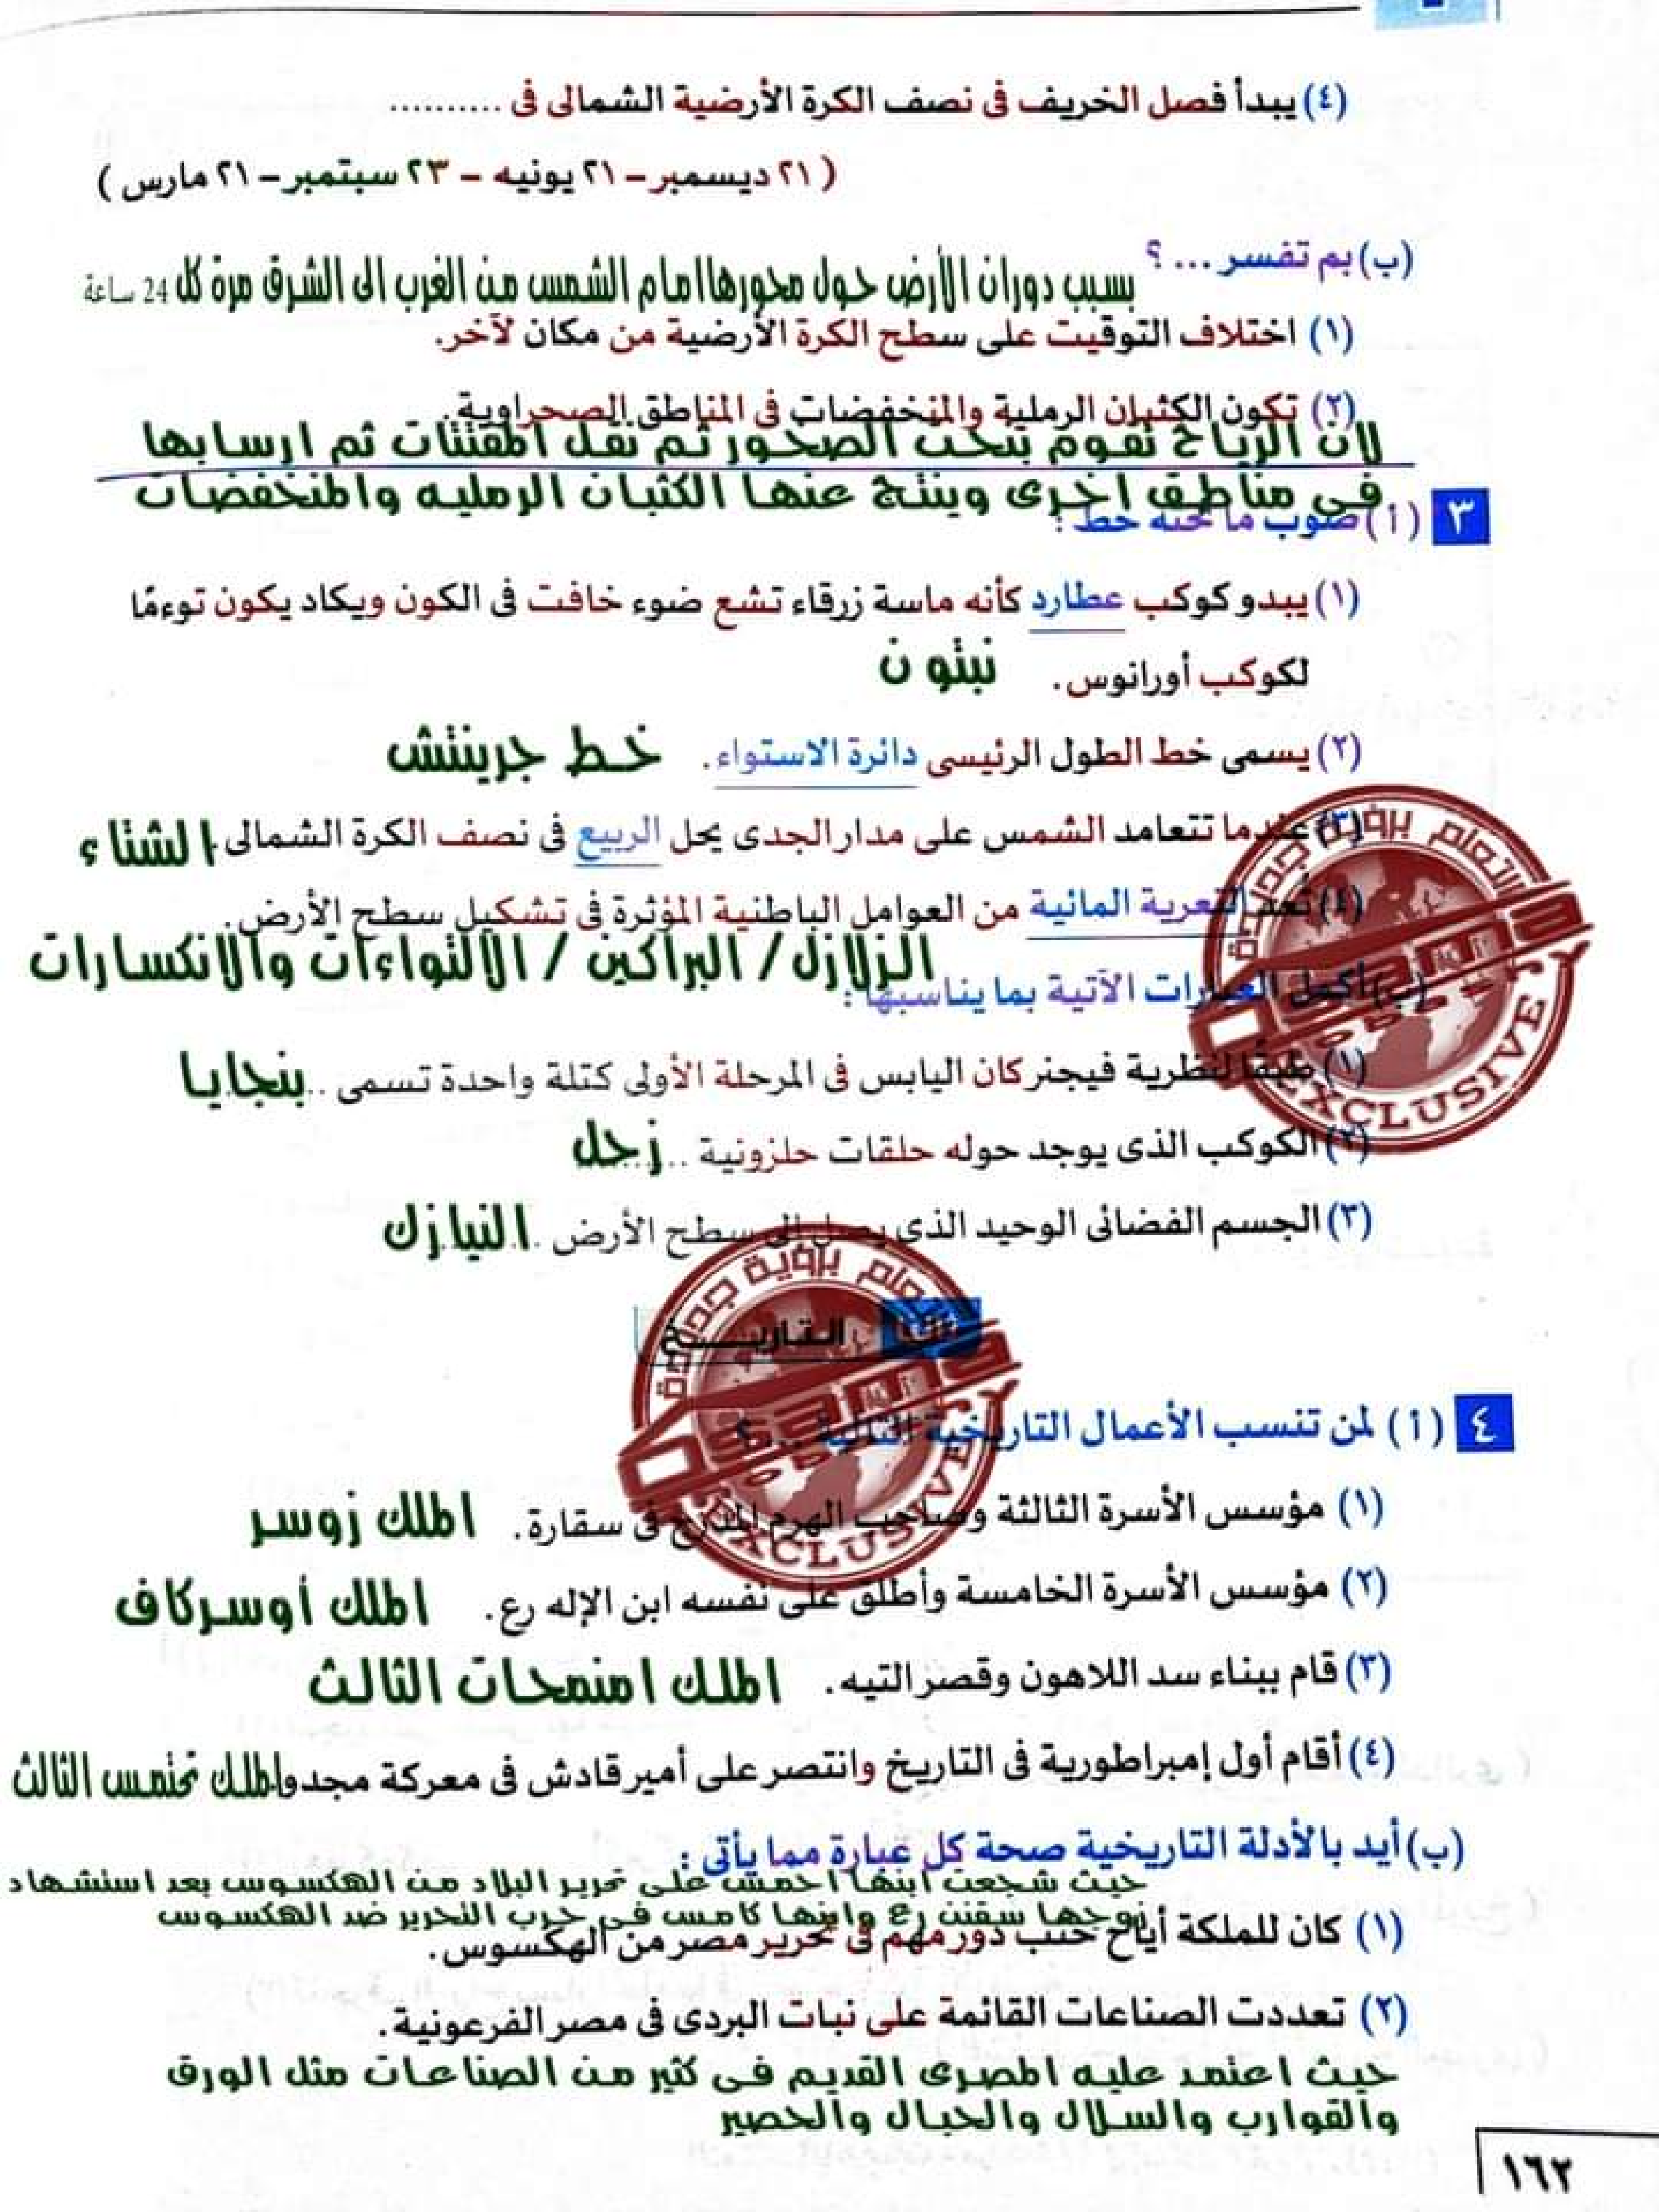 (٤) يبدأ فصل الخريف فى نصف الكرة الأرضية الشمالى فى ..........
( ٢١ ديسمبر – ٢١ يونيه – ٢٣ سبتمبر – ٢١ مارس )
(ب) بم تفسر ... ؟
بسبب دوران الأرض حول محورها امام الشمس من الغرب الى الشرق مرة كل 24 ساعة
(١) اختلاف التوقيت على سطح الكرة الأرضية من مكان لآخر.
(٢) تكون الكثبان الرملية والمنخفضات فى المناطق الصحراوية.
لان الرياح تقوم بنحت الصخور ثم نقل المفتتات ثم ارسابها
فى مناطق اخرى وينتج عنها الكثبان الرمليه والمنخفضات
٣ (أ) صوب ما تحته خط :
(١) يبدو كوكب عطارد كأنه ماسة زرقاء تشع ضوء خافت فى الكون ويكاد يكون توءمًا
لكوكب أورانوس. نبتون
(٢) يسمى خط الطول الرئيسى دائرة الاستواء. خط جرينتش
(٣) عندما تتعامد الشمس على مدار الجدى يحل الربيع فى نصف الكرة الشمالى الشتاء
(٤) تعد التعرية المائية من العوامل الباطنية المؤثرة فى تشكيل سطح الأرض.
الزلازل / البراكين / الالتواءات والانكسارات
(ب) أكمل العبارات الآتية بما يناسبها :
(١) طبقًا لنظرية فيجنر كان اليابس فى المرحلة الأولى كتلة واحدة تسمى .. بنجايا
(٢) الكوكب الذى يوجد حوله حلقات حلزونية .. زحل
(٣) الجسم الفضائى الوحيد الذى يصل إلى سطح الأرض . النيازك
ثانيًا التاريخ
٤ (أ) لمن تنسب الأعمال التاريخية التالية ... ؟
(١) مؤسس الأسرة الثالثة وصاحب الهرم المدرج فى سقارة. الملك زوسر
(٢) مؤسس الأسرة الخامسة وأطلق على نفسه ابن الإله رع. الملك أوسركاف
(٣) قام ببناء سد اللاهون وقصر التيه. الملك امنمحات الثالث
(٤) أقام أول إمبراطورية فى التاريخ وانتصر على أمير قادش فى معركة مجدو الملك تحتمس الثالث
(ب) أيد بالأدلة التاريخية صحة كل عبارة مما يأتى :
حيث شجعت ابنها احمس على تحرير البلاد من الهكسوس بعد استشهاد
زوجها سقنن رع وابنها كامس فى حرب التحرير ضد الهكسوس
(١) كان للملكة أياح حتب دور مهم فى تحرير مصر من الهكسوس.
(٢) تعددت الصناعات القائمة على نبات البردى فى مصر الفرعونية.
حيث اعتمد عليه المصرى القديم فى كثير من الصناعات مثل الورق
والقوارب والسلال والحبال والحصير
١٦٢
EXCLUSIVE
EXCLUSIVE